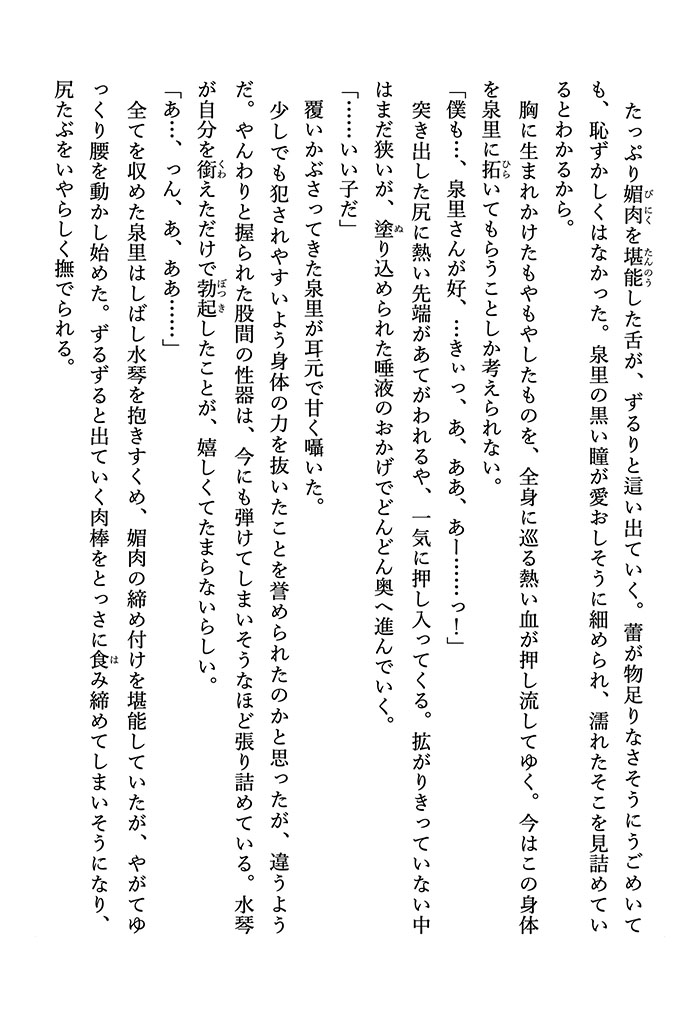 たっぷり媚肉を堪能した舌が、ずるりと這い出ていく。蕾が物足りなさそうにうごめいて
も、恥ずかしくはなかった。泉里の黒い瞳が愛おしそうに細められ、濡れたそこを見詰めてい
るとわかるから。
胸に生まれかけたもやもやしたものを、全身に巡る熱い血が押し流してゆく。今はこの身体
を泉里に拓いてもらうことしか考えられない。
「僕も…、泉里さんが好、…きぃっ、あ、ああ、あー……っ！」
突き出した尻に熱い先端があてがわれるや、一気に押し入ってくる。拡がりきっていない中
はまだ狭いが、塗り込められた唾液のおかげでどんどん奥へ進んでいく。
「……いい子だ」
覆いかぶさってきた泉里が耳元で甘く囁いた。
少しでも犯されやすいよう身体の力を抜いたことを誉められたのかと思ったが、違うよう
だ。やんわりと握られた股間の性器は、今にも弾けてしまいそうなほど張り詰めている。水琴
が自分を銜えただけで勃起したことが、嬉しくてたまらないらしい。
「あ…、っん、あ、ああ……」
全てを収めた泉里はしばし水琴を抱きすくめ、媚肉の締め付けを堪能していたが、やがてゆ
っくり腰を動かし始めた。ずるずると出ていく肉棒をとっさに食み締めてしまいそうになり、
尻たぶをいやらしく撫でられる。